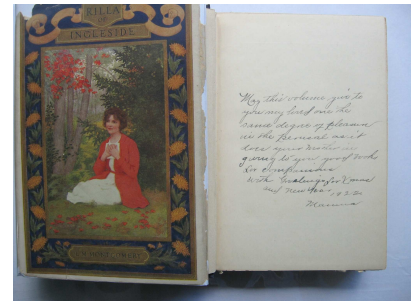 RILLA
OF
INGLESIDE
L.M. MONTGOMERY
May this volume give to
you my loved one the
same degree of pleasure
in the perusal as it
does your mother in
giving to you good books
for companions
With Greetings for Xmas
and New Year 1921
Mamma